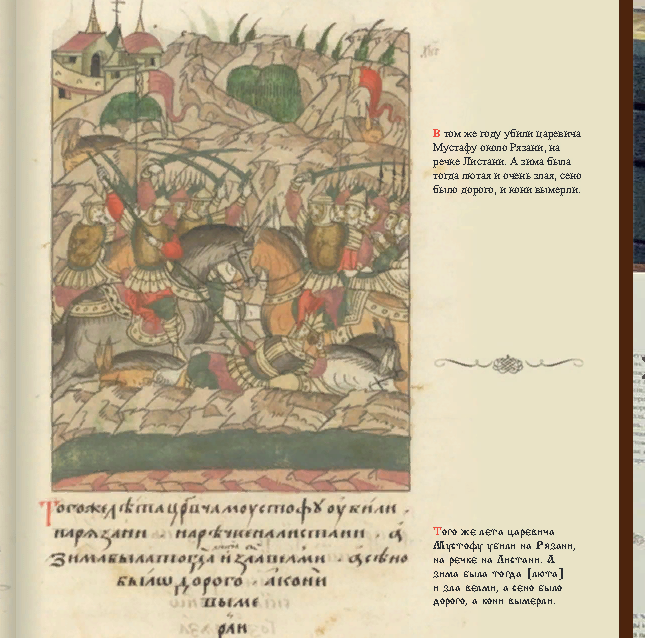 В том же году убили царевича
Мустафу около Рязани, на
речке Листани. А зима была
тогда лютая и очень злая, сено
было дорого, и кони вымерли.
Того же лѣта цр҃вича моустофу оубили .
на рязани на рѣчке на листани . а
зима была тогда и зла велми а сѣно
было дорого а кони
выме
рли
Того же лета царевича
Мустофу убили на Рязани,
на речке на Листани. А
зима была тогда [люта]
и зла велми, а сено было
дорого, а кони вымерли.